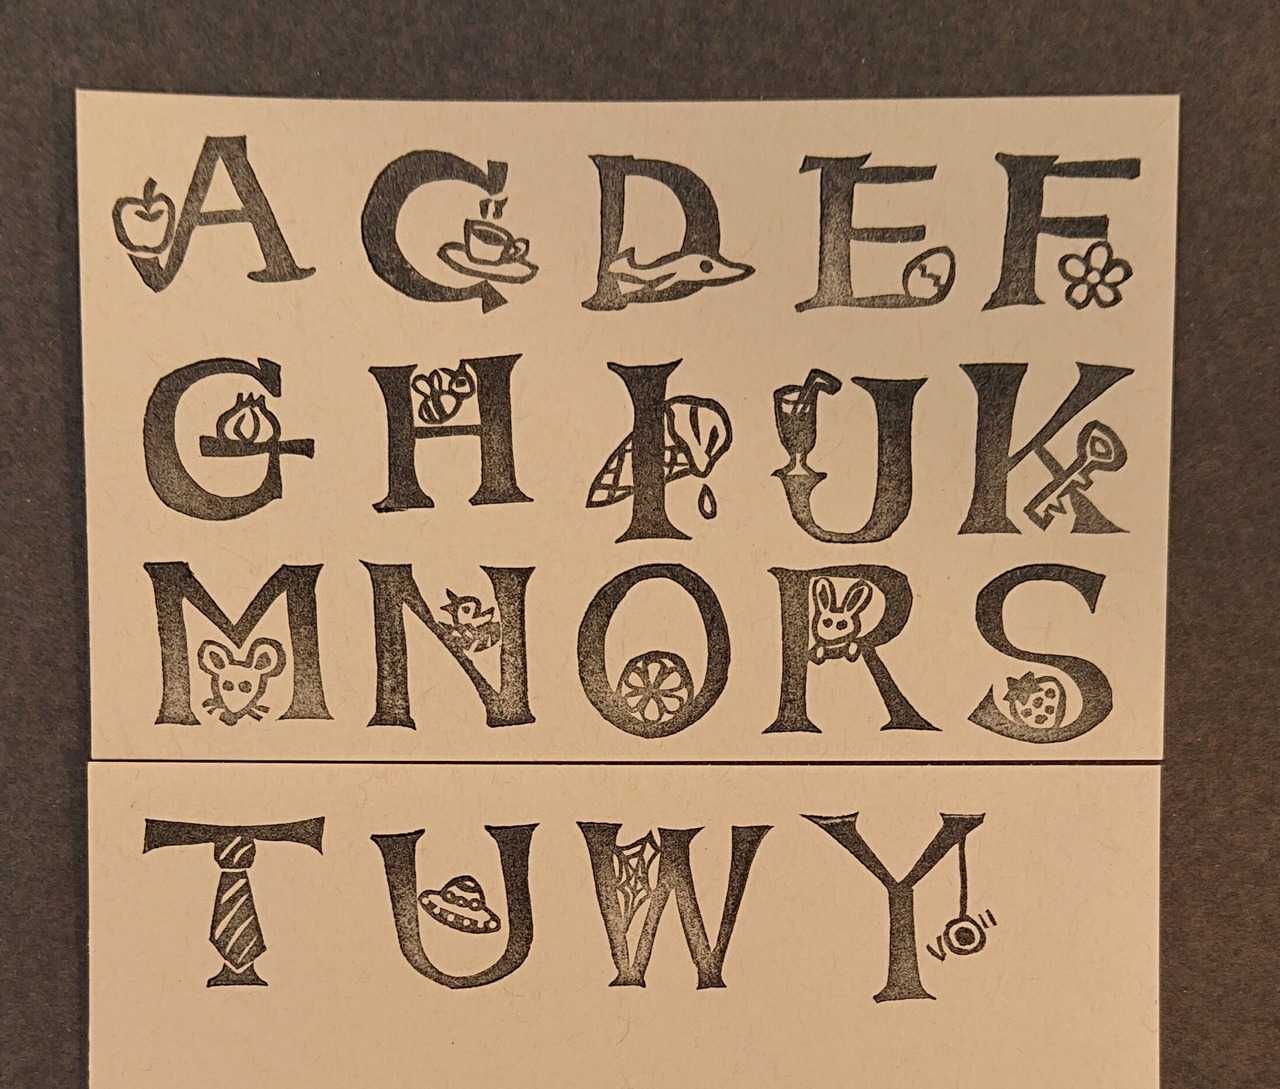 A C D E F
G H I J K
M N O R S
T U W Y